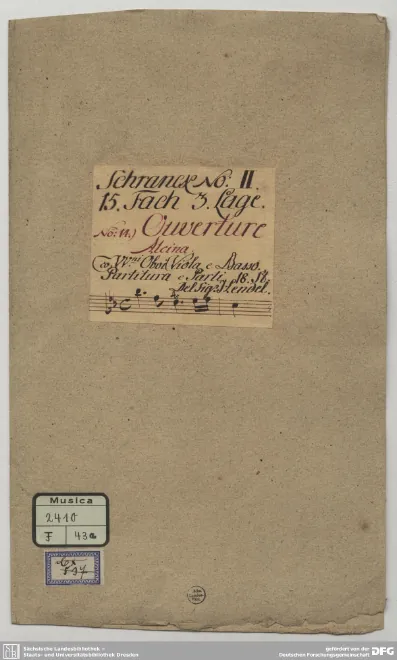 Schranck No: II.
15. Fach 3. Lage.
No: 11.) Ouverture
Alcina
Co VV.ni Oboi Viola e Basso.
Partitura e Parti 16. St.
Del Sig. Hendel.
Musica
2410
F 43a
Sächsische Landesbibliothek –
Staats- und Universitätsbibliothek Dresden
gefördert von der
Deutschen Forschungsgemeinschaft DFG